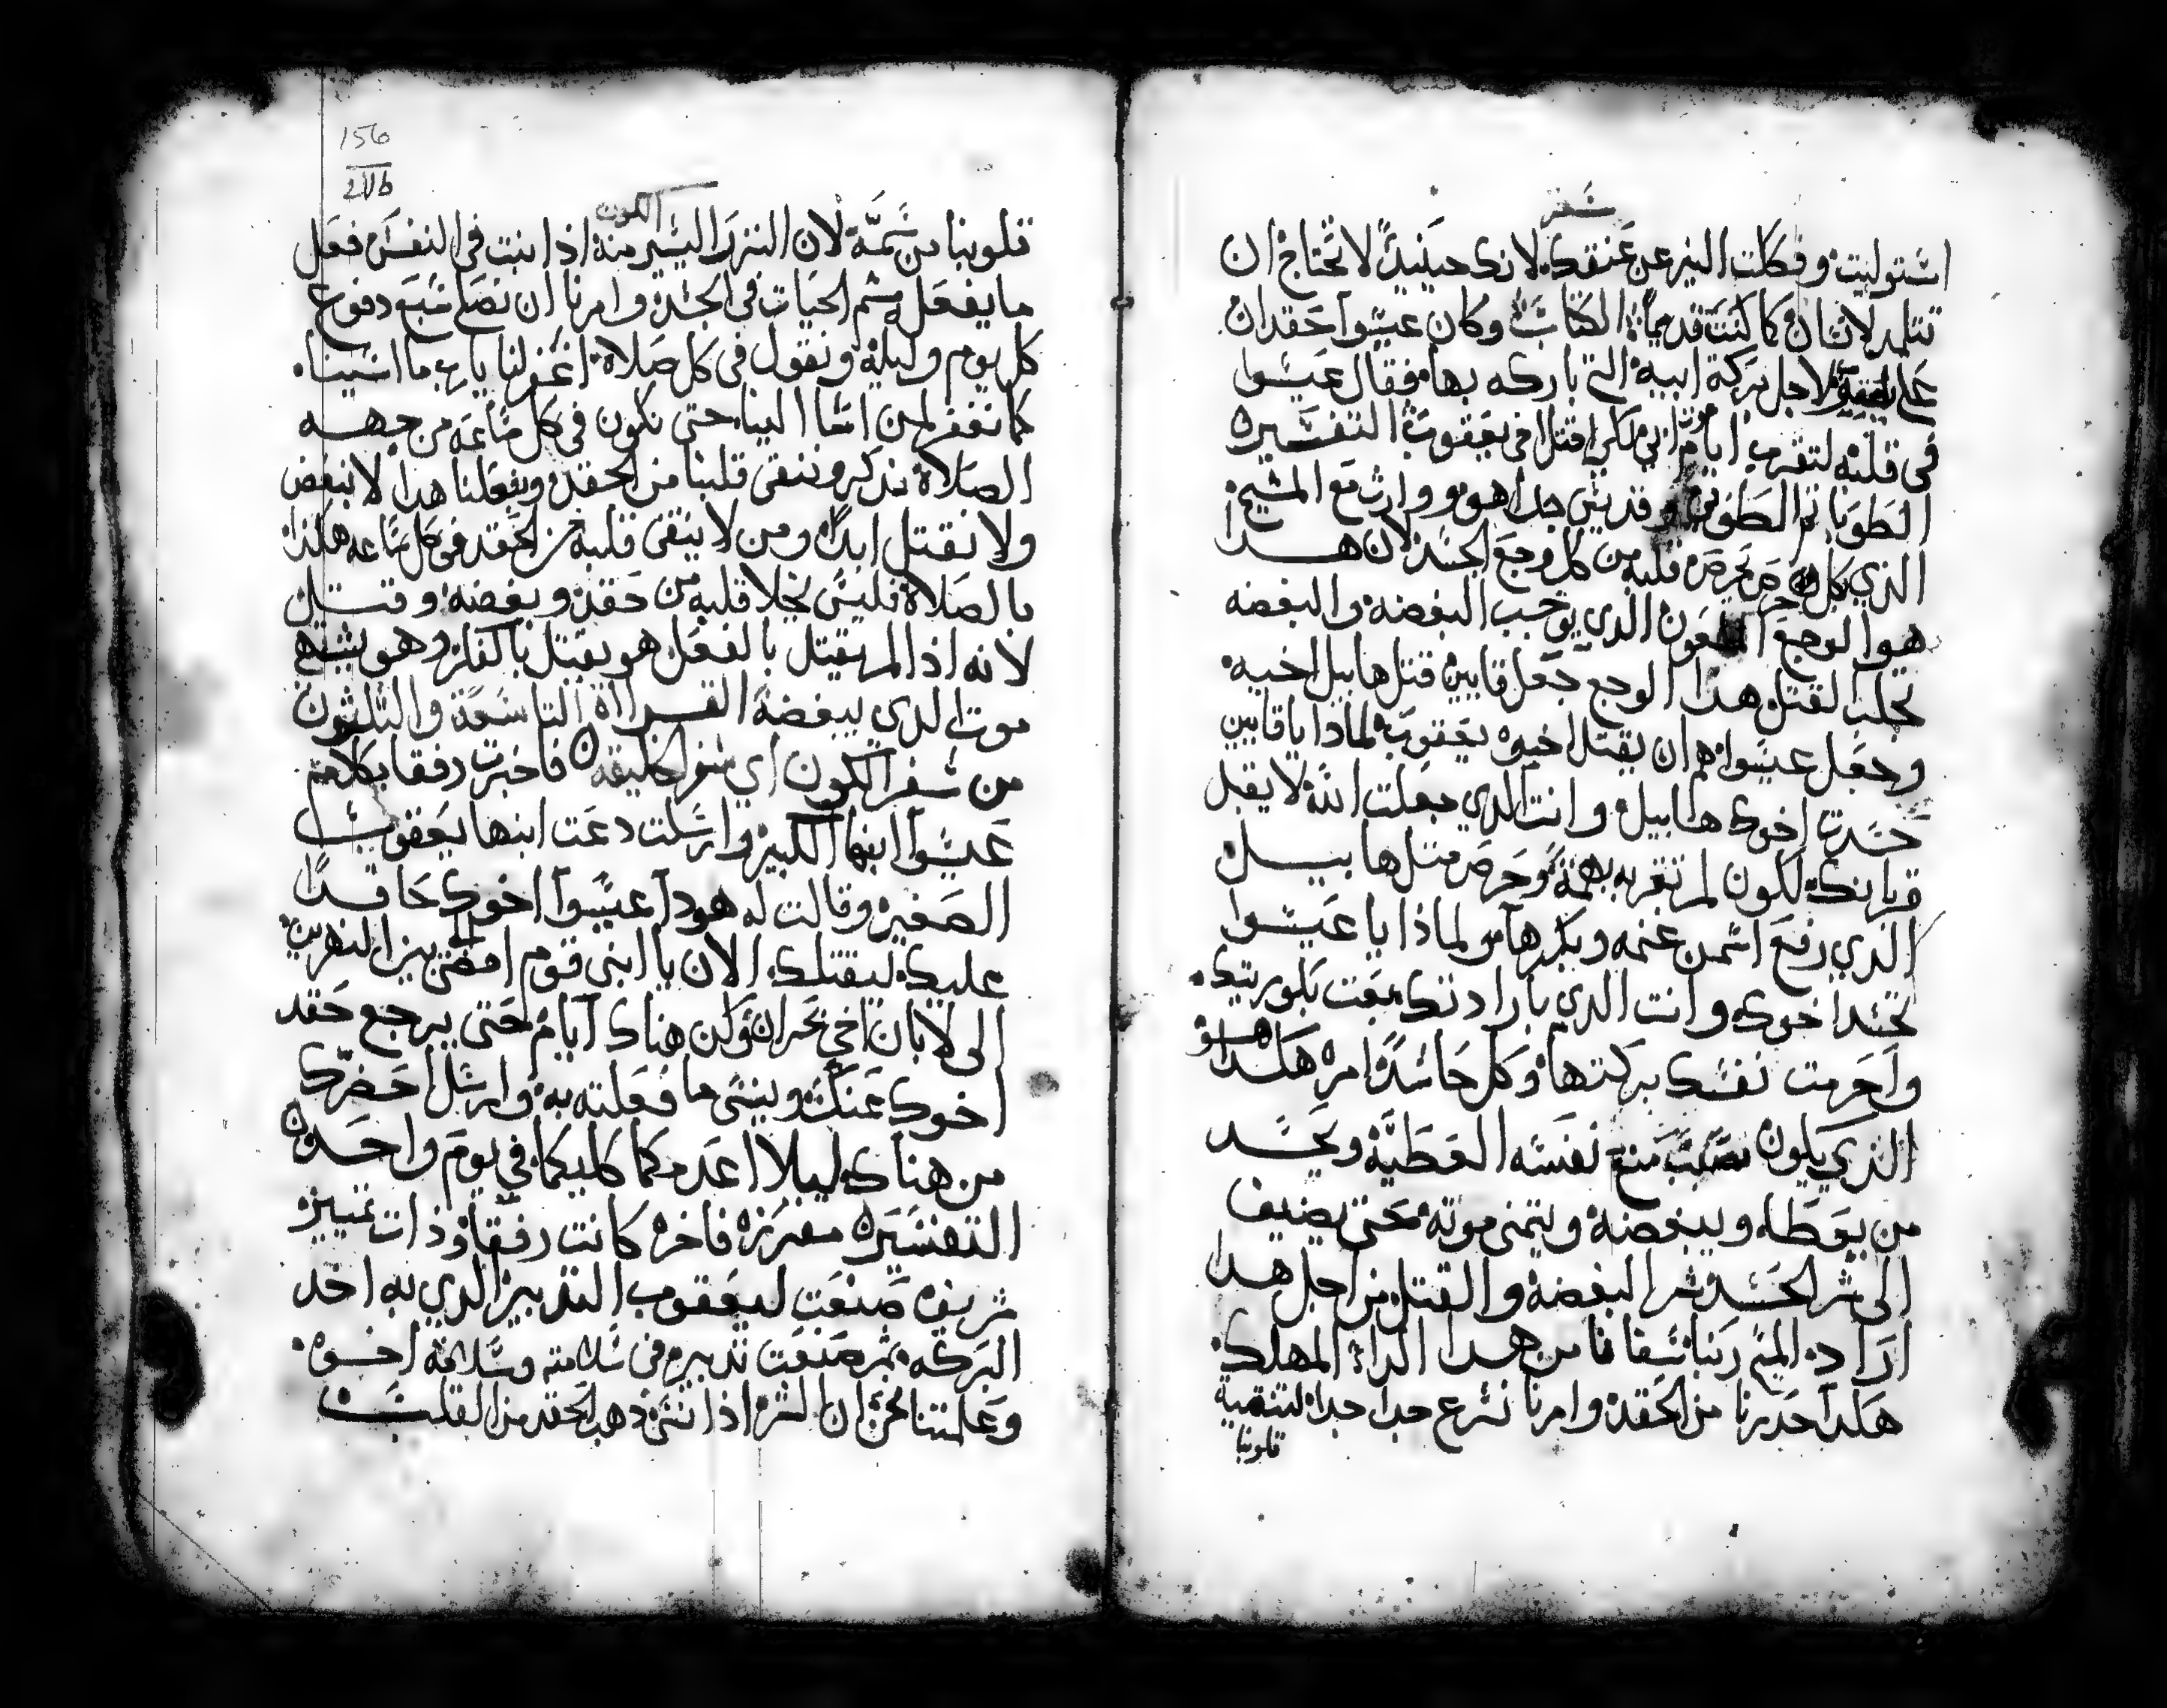 سفر
استوليت وفكلت النير عن عنقك لانك حينيدً لا تحتاج ان
تتلمد لانسان كما كنت قديماً الكتاب وكان عيسوا حقدان
على يعقوب لاجل بركة ابيه التي باركه بها فقال عيسوا
في قلبه لتقرب ايام ابي لكي اقتل اخي يعقوب التفسيره
الطوبا ثم الطوبى وقديس جدا هو ووارث مع المسيح
الذي كل من حرص قلبه من كل وجع الحسد لان هدا
هوا الوجع الملعون الدي يوجب البغضه والبغضه
تجلب القتل هدا الوجع جعل قايين قتل هابيل اخيه
وجعل عيسوا هم ان يقتل اخيه يعقوب لمادا ياقايين
حسدت اخوك هابيل وانت الدي جعلت الله لا يقبل
قربانك لكون لم تقربه بهمة وحرص متل هابيل
الذي رفع اسمن غنمه وبكرها ولماذا يا عيسوا
تحسد اخوك وانت الدي بارادتك بعت بكوريتك
واحرمت نفسك بركتها وكل حاسدً امره هكدا هو
الذي يكون منع نفسه العطيّة ويحسد
من يعطا ويبغضه ويتمنى موته حتى يضيف
الى شر الحسد شر البغضه والقتل من اجل هدا
اراد المسيح ربنا شفانا من هدا الداء المهلك
هكدا حدرنا من الحقد وامرنا نسرع جدا جدا لتنقية
قلوبنا
156
الكون
قلوبنا من سمّه لان النزر اليسير منه اذا نبت في النفس فعل
ما يفعل سم الحيات في الجسد وامرنا ان نصلي سبع دفوع
كل يوم وليله ونقول في كل صلاة اغفر لنا يا رب ما اسينا
كما نغفر لمن اسا الينا حتى نكون في كل ساعه من جهه
الصلاة نذكر وننقى قلبنا من الحقد وبفعلنا هدا لا نبغض
ولا نقتل ابداً ومن لا ينقى قلبه من الحقد في كل ساعه هكذا
بالصلاة فليس يخلا قلبه من حقد وبغضه وقتل
لانه اذا لم يقتل بالفعل هو يقتل بالفكر وهو يشتهي
موت الدي يبغضه القراة التاسعة والتلثون
من سفر الكون اي سفر الخليقه فاخبرت رفقا بكلام
عيسوا ابنها الكبير وارسلت دعت ابنها يعقوب
الصغير وقالت له هودا عيسوا اخوك حاقداً
عليك ليقتلك الان يا ابنى قوم امضى الى بين النهرين
الى لابان اخي بحران وكن هناك ايام حتى يرجع حقد
اخوك عنك وينسى ما فعلته به وارسل احضرك
من هناك ليلا اعدمكما كليكما في يوم واحد
التفسيره مفرزه فاخره كانت رفقا وذات تمييز
شريف صنعت ليعقوب التدبير الدي به اخد
البركه ثم صنعت تدبير في سلامته وسلامة اخوه
وعلمتنا نحن ان الشر اذا نسى دهب الحقد من القلب